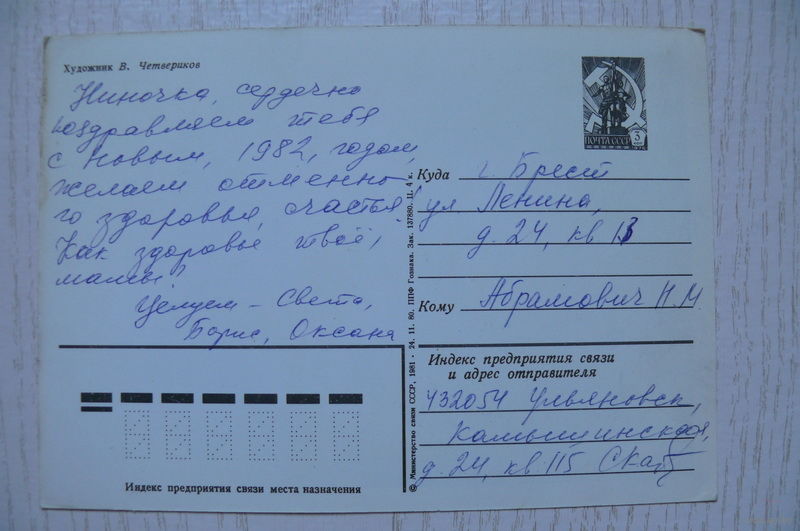 Художник В. Четвериков
Ниночка, сердечно
поздравляем тебя
с Новым, 1982, годом,
желаем отменно-
го здоровья, счастья.
Как здоровье твоё,
мамы?
Целуем – Света,
Борис, Оксана
ПОЧТА СССР 3 коп
1976
Куда г. Брест
ул Ленина,
д. 24, кв 13
Кому Абрамович Н.М.
Индекс предприятия связи
и адрес отправителя
432054 Ульяновск,
Камышинская,
д. 24, кв. 115
Индекс предприятия связи места назначения
© Министерство связи СССР, 1981 · 24. 11. 80. ППФ Гознака. Зак. 137880. Ц. 4 к.